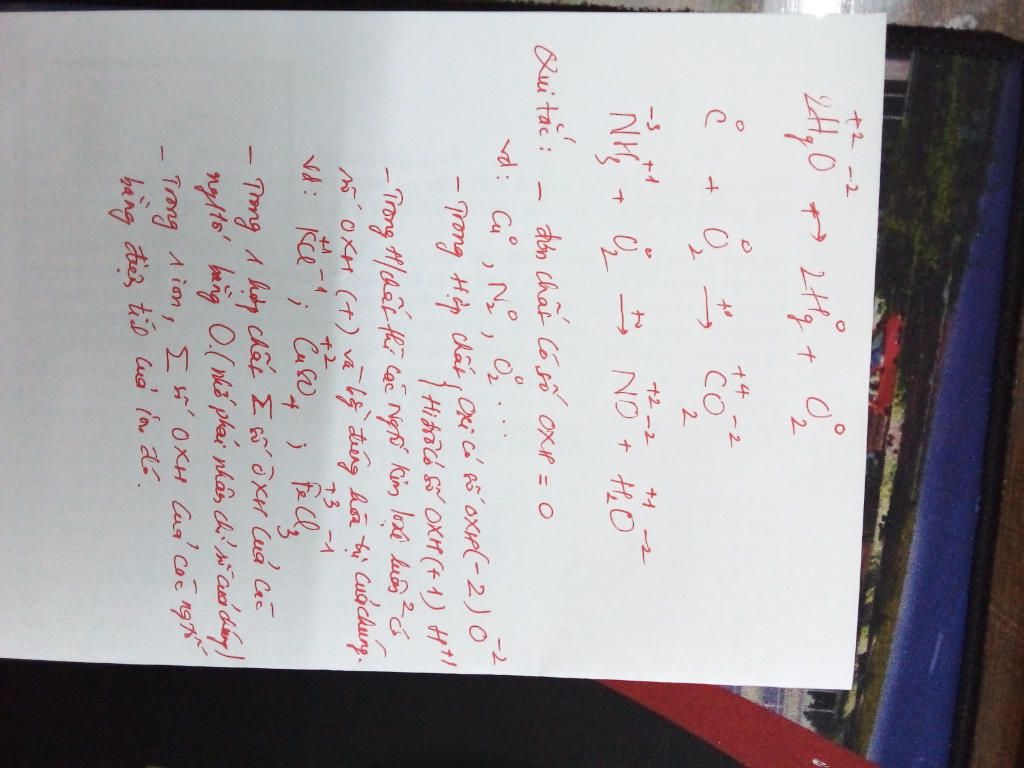 2HgO⁺²⁻² → 2Hg⁰ + O₂⁰
C⁰ + O₂⁰ →ᵗ⁰ C⁺⁴O₂⁻²
N⁻³H₃⁺¹ + O₂⁰ →ᵗ⁰ N⁺²O⁻² + H₂⁺¹O⁻²
Qui tắc: - đơn chất có số OXH = 0
vd: Cu⁰, N₂⁰, O₂⁰...
- Trong Hợp chất, Oxi có số OXH (-2) O⁻²
Hidro có số OXH (+1) H⁺¹
- Trong H/chất thì các Ngtố Kim loại luôn có
số OXH (+) và bằng đúng hóa trị của chúng.
vd: K⁺¹Cl⁻¹; Cu⁺²SO₄; Fe⁺³Cl₃⁻¹
- Trong 1 hợp chất Σ số OXH của các
ngtố bằng 0 (nhớ phải nhân chỉ số của chúng)
- Trong 1 ion, Σ số OXH của các ngtố
bằng điện tích của ion đó.